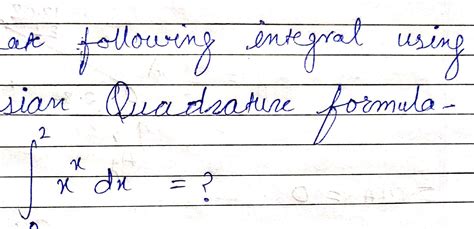 following integral using
sian Quadrature formula-
∫ 2
x^x dx = ?